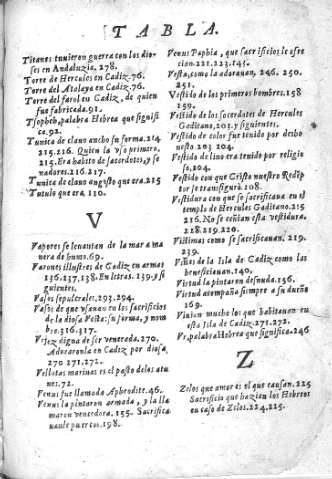 TABLA.
Titanes tuuieron guerra con los dio-
ses en Andaluzia. 278.
Torre de Hercules en Cadiz. 76.
Torre del Atalaya en Cadiz. 76.
Torre del farol en Cadiz, de quien
fue fabricada. 91.
palabra Hebrea que signifi
ca. 92.
Tunica de clauo ancho su forma. 214
215. 216. Quien la vso primero,
215. Era habito de sacerdotes, y se
nadores. 216. 217.
Tunica de clauo angusto que era. 215
Tutulo que era. 110.
V
Vapores se leuantan de la mar a ma
nera de humo. 69.
Varones illustres de Cadiz en armas
136. 137. 138. En letras. 139. y si
guientes.
Vasos sepulcrales. 293. 294.
Vasos de que vsauan en los sacrificios
de la diosa Vesta: su forma, y nom
bre. 316. 317.
Vejez digna de ser venerada. 270.
Adorauanla en Cadiz por diosa
270. 271. 272.
Vellotas marinas es el pasto de los atu
nes. 72.
Venus fue llamada Aphrodite. 46.
Venus la pintaron armada, y la lla
maron vencedora. 155. Sacrifica
uanle puercos. 198.
Venus Paphia, que sacrificios le ofre
cian. 221. 223. 145.
Vesta, como la adorauan, 246. 250.
251.
Vestido de los primeros hombres. 158
159.
Vestido de los sacerdotes de Hercules
Gaditano, 203. y siguientes.
Vestido de color fue tenido por desho
nesto 203. 204.
Vestido de lino era tenido por religio
so, 204.
Vestido con que Cristo nuestro Redẽp
tor se transfigurò. 208.
Vestidura con que se sacrificaua en el
templo de Hercules Gaditano. 215
216. No se ceñian esta vestidura.
218. 219. 220.
Victimas como se sacrificauan. 219.
239.
Viñas de la Isla de Cadiz como las
beneficiauan. 140.
Virtud la pintaron desnuda. 156.
Virtud acompaña siempre a su dueño
169.
Viuian mucho los que habitauan en
esta Isla de Cadiz. 271. 272.
Vr, palabra Hebrea que significa. 246
Z
Zelos que amor es el que causan. 225
Sacrificio que hazien los Hebreos
en caso de Zelos. 224. 225.